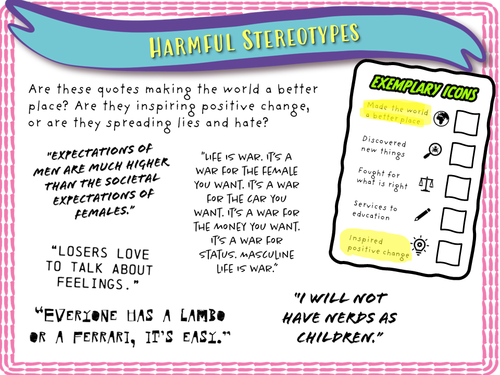 HARMFUL STEREOTYPES
Are these quotes making the world a better
place? Are they inspiring positive change,
or are they spreading lies and hate?
"EXPECTATIONS OF
MEN ARE MUCH HIGHER
THAN THE SOCIETAL
EXPECTATIONS OF
FEMALES."
"LOSERS LOVE
TO TALK ABOUT
FEELINGS."
"LIFE IS WAR. IT'S A
WAR FOR THE FEMALE
YOU WANT. IT'S A WAR
FOR THE CAR YOU
WANT. IT'S A WAR FOR
THE MONEY YOU WANT.
IT'S A WAR FOR
STATUS. MASCULINE
LIFE IS WAR."
"EVERYONE HAS A LAMBO
OR A FERRARI, IT'S EASY."
"I WILL NOT
HAVE NERDS AS
CHILDREN."
EXEMPLARY ICONS
Made the world
a better place
Discovered
new things
Fought for
what is right
Services to
education
Inspired
positive change